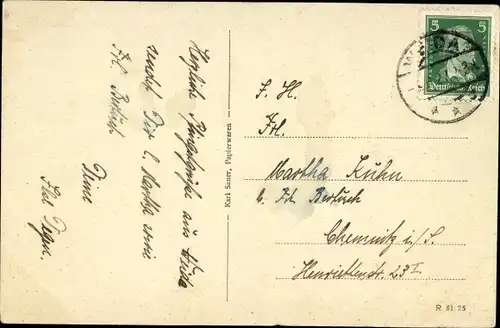 Herzliche Pfingstgrüße aus Weida
sendet Dir l. Martha
Frl. Bertuch
Deine
Karl Sauer, Papierwaren
WEIDA
5 5
Deutsches Reich
F. H.
Frl.
Martha Kühn
b. Frl. Bertuch
Chemnitz i/S.
Henriettenstr. 23 I
R 81/25